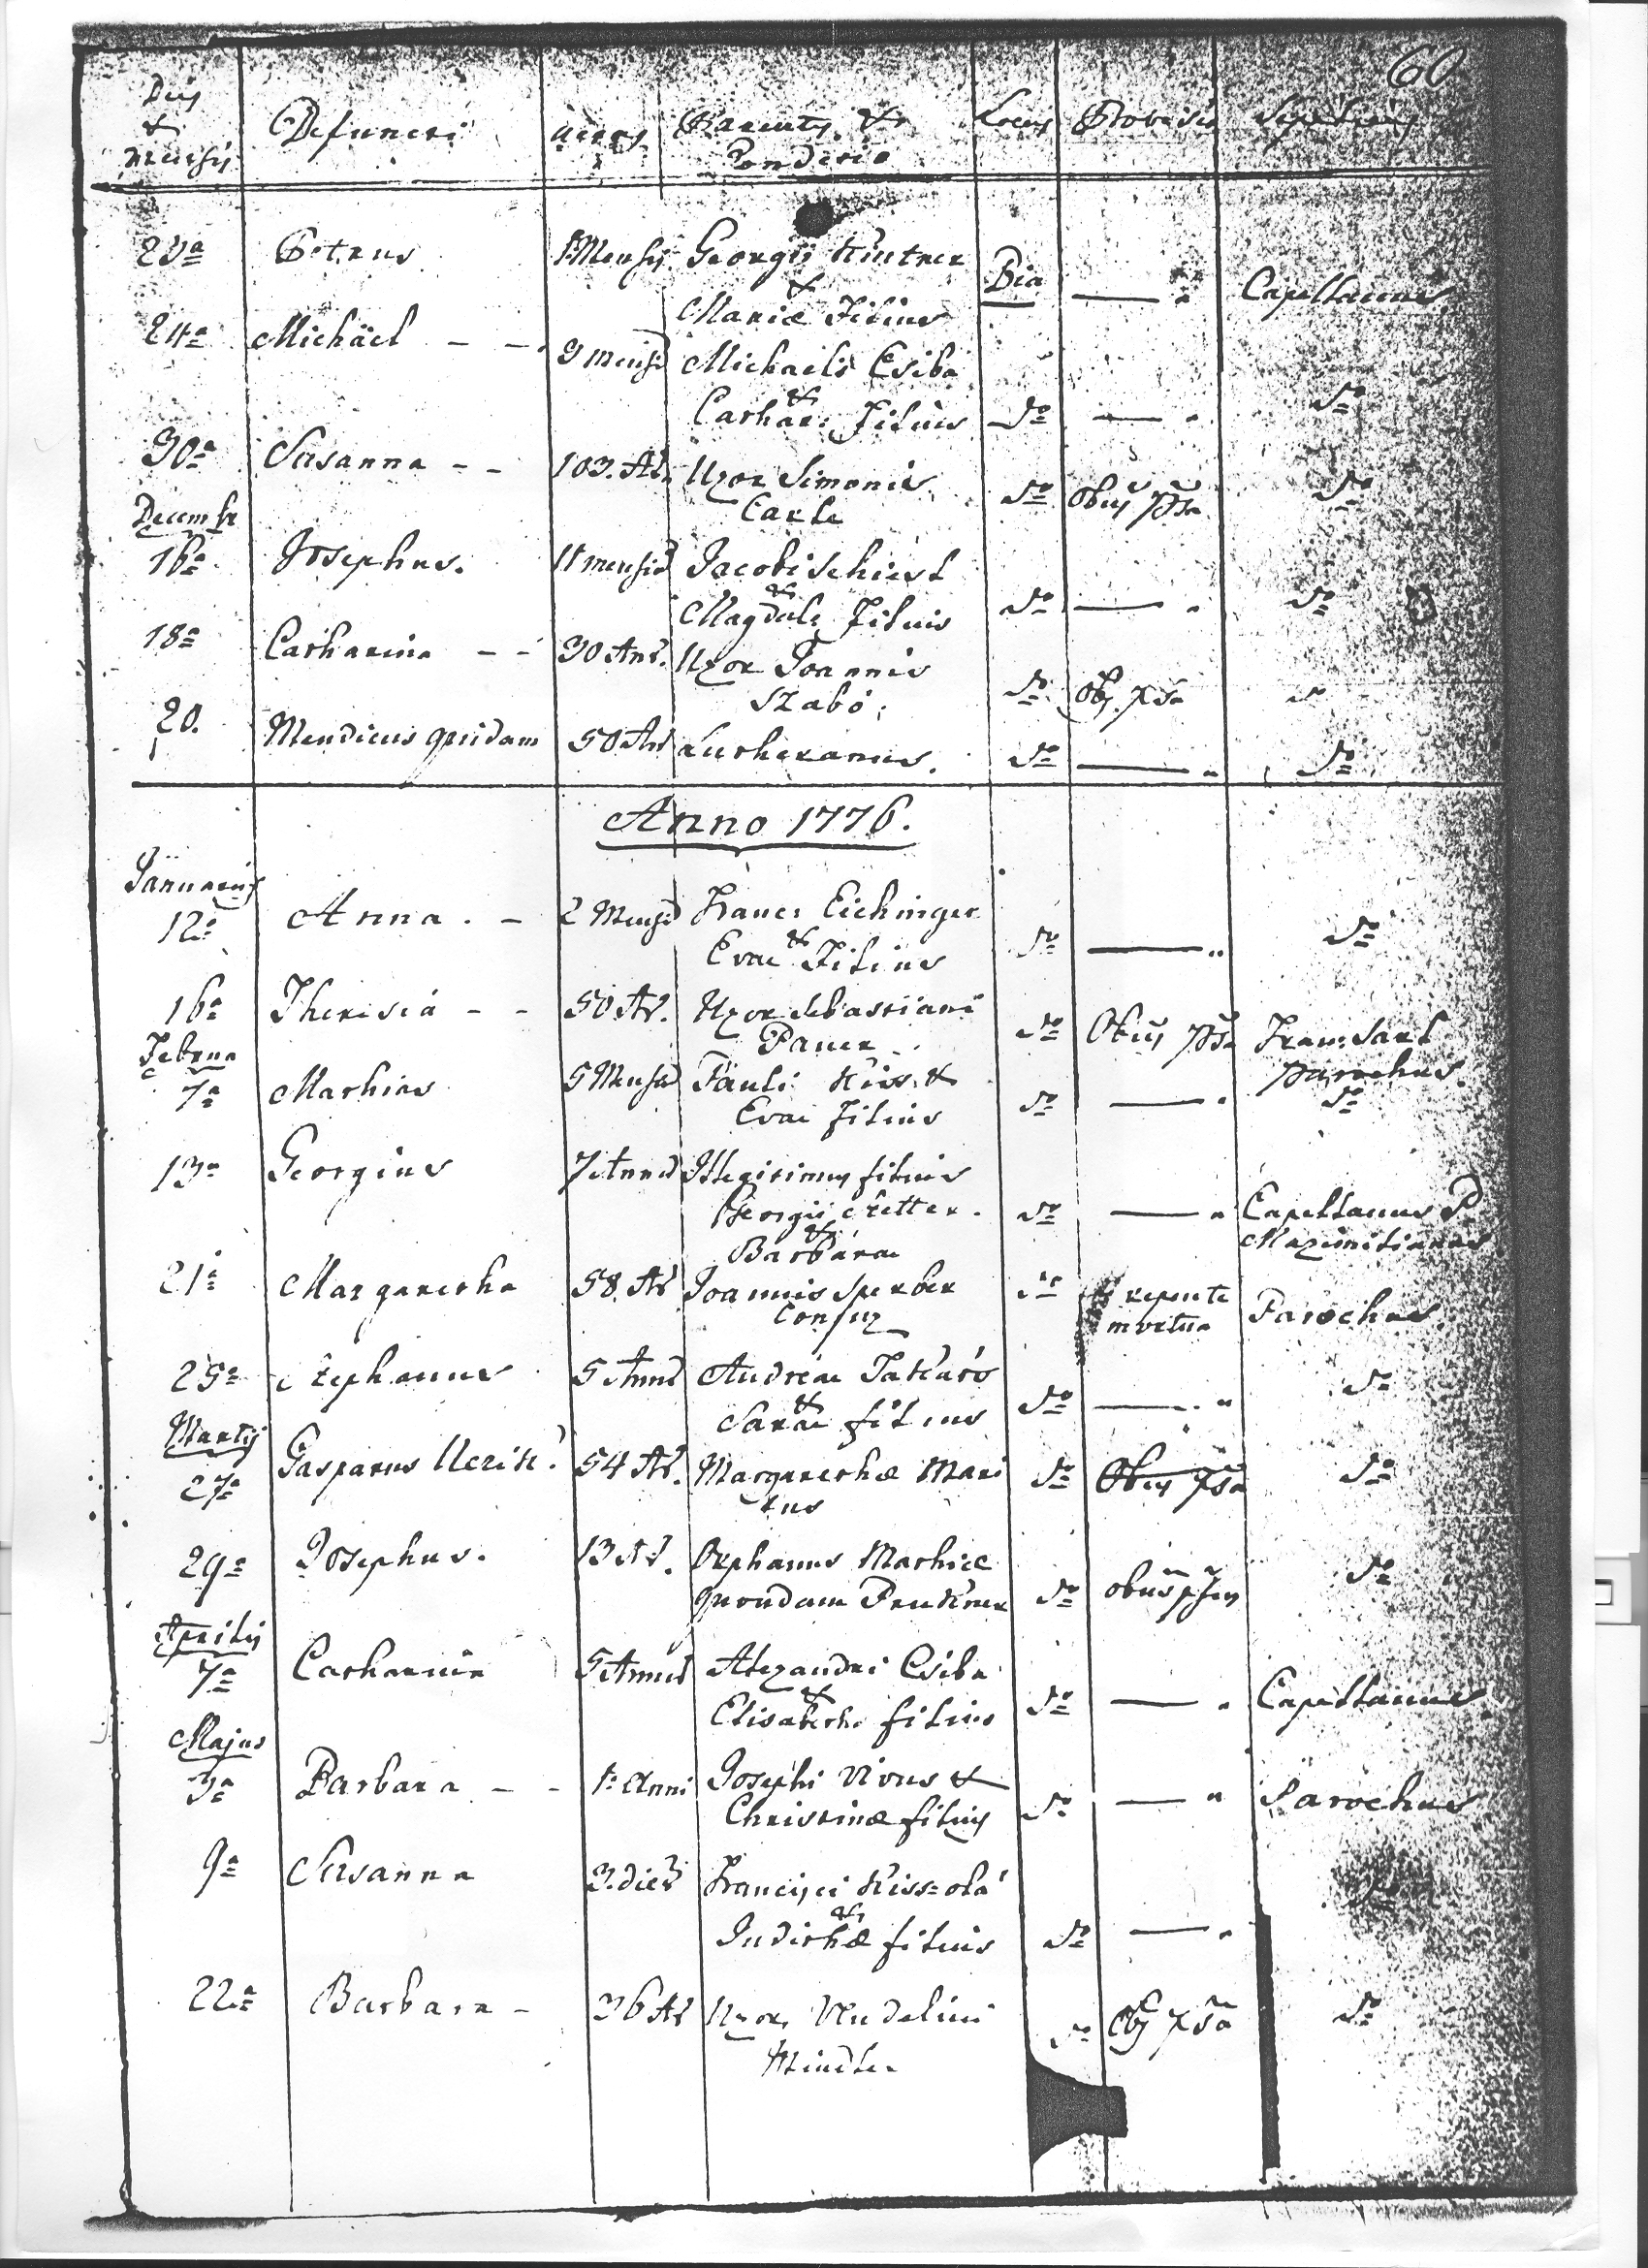 60
Dies & Mensis Defuncti Aetas Parentes & Conditio Locus Provisio Sepeliens
23a Petrus 1 Mensis Georgii Kintner
&
Mariæ Filius Bia — " Capellanus
24a Michäel - - 9 mensis Michaelis Csiba
&
Cathar: Filius do — " do
30a Susanna - - 103. An. Uxor Simonis
Carle do do
Decembr
16a Josephus. 11 mensis Jacobi Schierl
&
Magdale: Filius do — " do
18a Catharina - - 30 Ann. Uxor Joannis
Szabó. do do
20. Mendicus quidam 50 An Lutheranus. do — " do
Anno 1776.
Januarius
12a Anna. - 2 Mensis Franc: Eichinger
&
Evae Filius do — " do
16a Theresia - - 50 An. Uxor Sebastiani
Pauer do Franc: Sarl
Parochus.
Februa
7a Mathias 5 Mensis Pauli Kiss &
Evae filius do — " do
13a Georgius 7 Annis Illegitimus filius
Georgii Cretter.
&
Barbarae do — " Capellanus P
Maximilianus
21a Margaretha 58 An Joannis Sperber
Conjux do repente
mortua Parochus.
25a Stephanus 5 Annis Andreae Takáts
&
Sarae filius do — " do
Martij
27a Gasparus 54 An. Margarethæ Mari
tus do do
29a Josephus. 13 An. Orphanus Mathiæ
quondam Prukner do do
Aprilis
7a Catharina 5 Annis Alexandri Csiba
&
Elisabeth: filius do — " Capellanus
Majus
3a Barbara - - 1: Anni Josephi Vivus &
Christinæ filius do — " Parochus
9a Susanna 3. dies Francisci Kiss=olá
&
Judithæ filius do — "
22a Barbara - 36 An Uxor Vendelini
Mindler do do